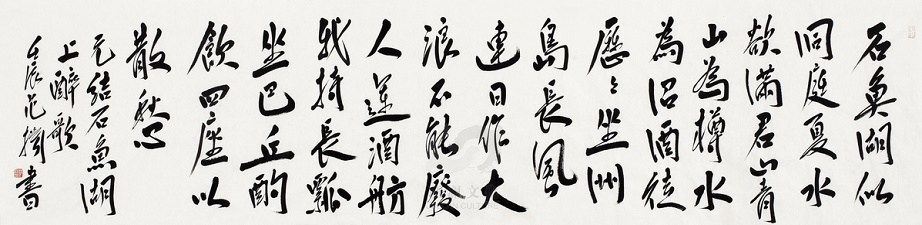 石魚湖似
洞庭夏水
欲滿君山青
山為樽水
為沼酒徒
歷〻坐洲
島長風
連日作大
浪不能廢
人運酒舫
我持長瓢
坐巴丘酌
飲四座以
散愁
元結石魚湖
上醉歌
壬辰范 書